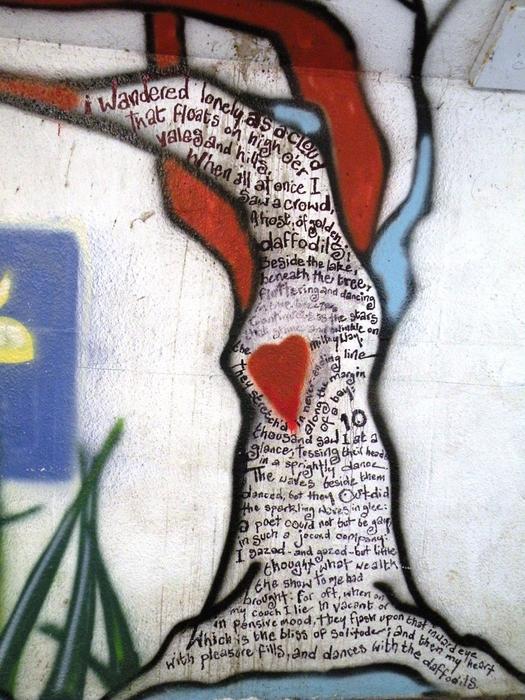 i wandered lonely as a cloud
That floats on high o'er
vales and hills,
When all at once I
saw a crowd,
A host, of golden
daffodils;
Beside the lake,
beneath the trees,
Fluttering and dancing
in the breeze.
Continuous as the stars
that shine and twinkle on
the milky way,
They stretch'd in never-ending line
along the margin
of a bay:
10
thousand saw I at a
glance, tossing their heads
in a sprightly dance
The waves beside them
danced, but they Outdid
the sparkling waves in glee:
a poet could not but be gay,
in such a jocund company:
I gazed-and gazed-but little
thought what wealth
the show to me had
brought: for oft, when on
my couch I lie in vacant or
in pensive mood, they flash upon that inward eye
Which is the bliss of solitude; and then my heart
with pleasure fills, and dances with the daffodils.